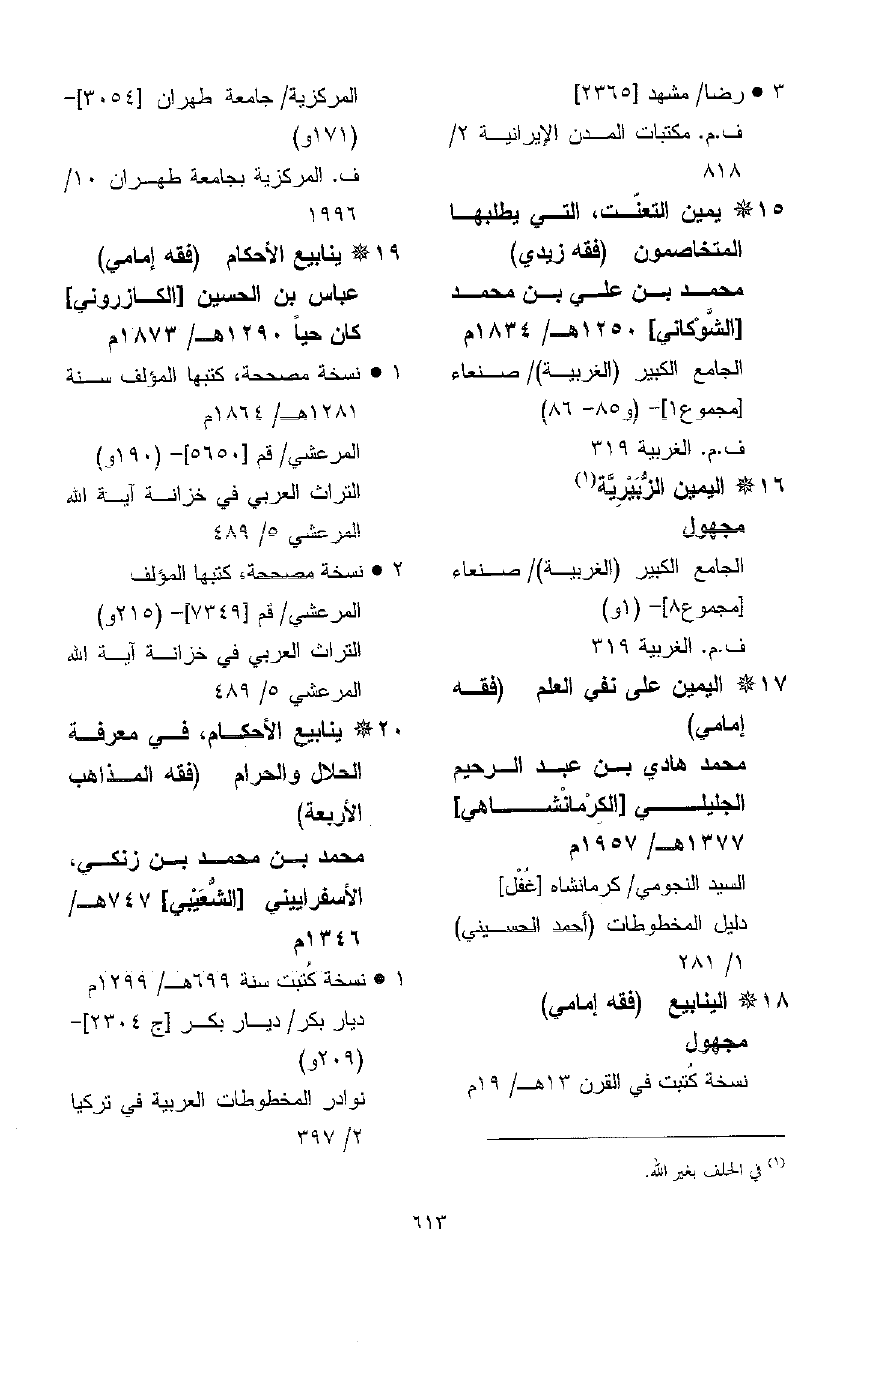 ٣ ● رضا/ مشهد [٢٣٦٥]
ف.م. مكتبات المدن الإيرانية ٢/
٨١٨
١٥ ❋ يمين التعنّت، التي يطلبها
المتخاصمون (فقه زيدي)
محمد بن علي بن محمد
[الشَّوْكاني] ١٢٥٠هـ/ ١٨٣٤م
الجامع الكبير (الغربية)/ صنعاء
[مجموع١]- (و٨٥- ٨٦)
ف.م. الغربية ٣١٩
١٦ ❋ اليمين الزُّبَيْرِيَّة(١)
مجهول
الجامع الكبير (الغربية)/ صنعاء
[مجموع٨]- (١و)
ف.م. الغربية ٣١٩
١٧ ❋ اليمين على نفي العلم (فقه
إمامي)
محمد هادي بن عبد الرحيم
الجليلي [الكِرْمانْشاهي]
١٣٧٧هـ/ ١٩٥٧م
السيد النجومي/ كرمانشاه [غُفْل]
دليل المخطوطات (أحمد الحسيني)
١/ ٢٨١
١٨ ❋ الينابيع (فقه إمامي)
مجهول
نسخة كُتبت في القرن ١٣هـ/ ١٩م
(١) في الحلف بغير الله.
المركزية/ جامعة طهران [٣٠٥٤]-
(١٧١و)
ف. المركزية بجامعة طهران ١٠/
١٩٩٦
١٩ ❋ ينابيع الأحكام (فقه إمامي)
عباس بن الحسين [الكازروني]
كان حياً ١٢٩٠هـ/ ١٨٧٣م
١ ● نسخة مصححة، كتبها المؤلف سنة
١٢٨١هـ/ ١٨٦٤م
المرعشي/ قم [٥٦٥٠]- (١٩٠و)
التراث العربي في خزانة آية الله
المرعشي ٥/ ٤٨٩
٢ ● نسخة مصححة، كتبها المؤلف
المرعشي/ قم [٧٣٤٩]- (٢١٥و)
التراث العربي في خزانة آية الله
المرعشي ٥/ ٤٨٩
٢٠ ❋ ينابيع الأحكام، في معرفة
الحلال والحرام (فقه المذاهب
الأربعة)
محمد بن محمد بن زنكي،
الأسفراييني [الشُّعَيْبي] ٧٤٧هـ/
١٣٤٦م
١ ● نسخة كُتبت سنة ٦٩٩هـ/ ١٢٩٩م
ديار بكر/ ديار بكر [ج ٢٣٠٤]-
(٢٠٩و)
نوادر المخطوطات العربية في تركيا
٢/ ٣٩٧
٦١٣